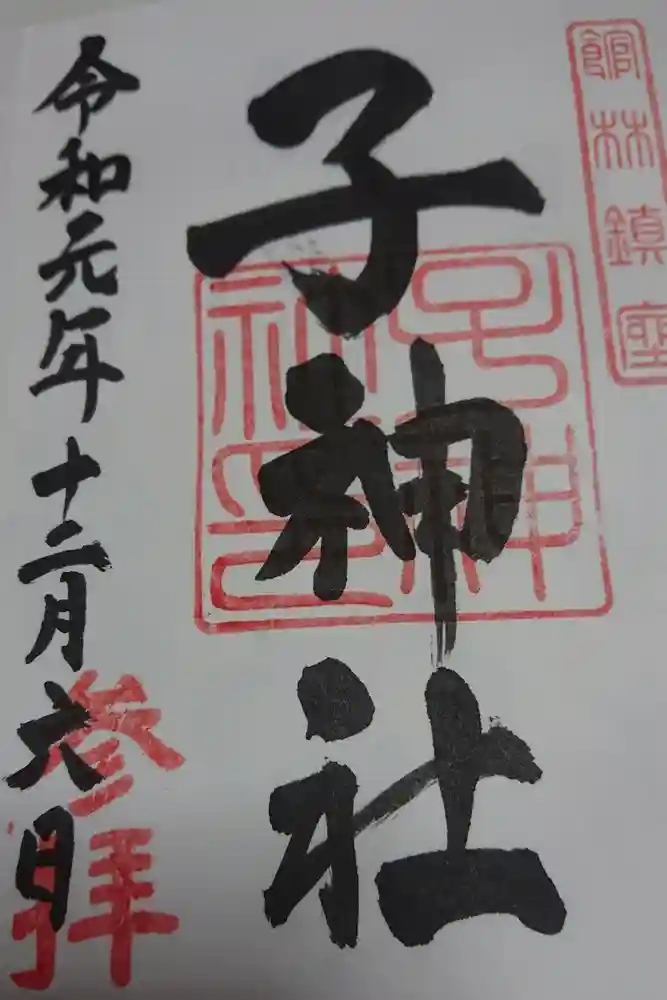 館林鎮座
子神社
子神社印
令和元年十二月六日
参拝